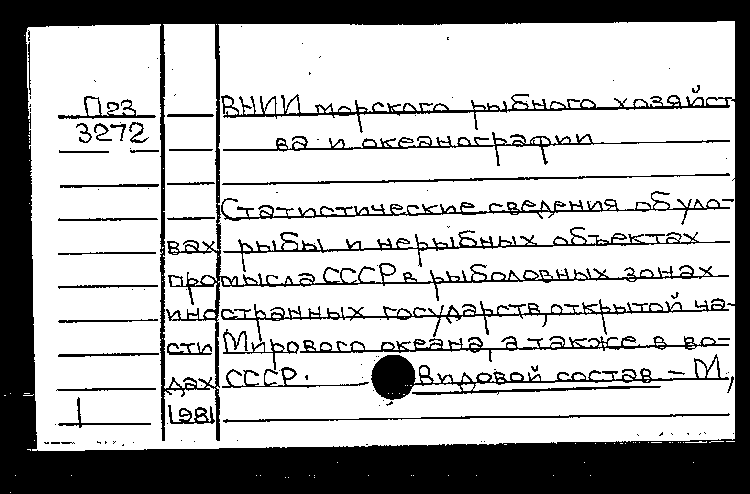 Пөз ВНИИ морского рыбного хозяйст-
3272 ва и океанографии
Статистические сведения об уло-
вах рыбы и нерыбных объектах
промысла СССР в рыболовных зонах
иностранных государств, открытой ча-
сти Мирового океана, а также в во-
дах СССР. Видовой состав – М,
1 1981